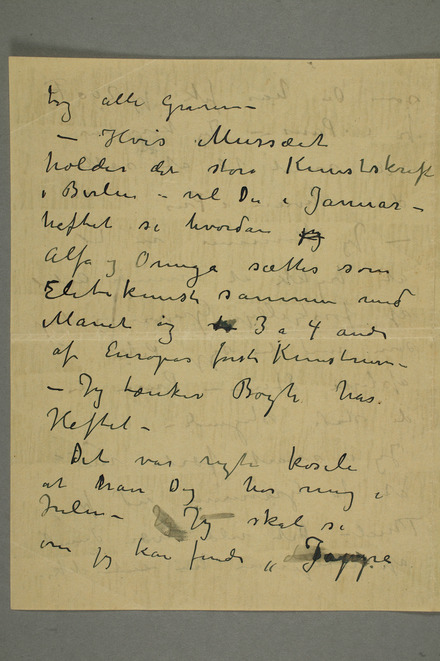 og alle Graven—
— Hvis Mussæet
holder det store Kunstskrift
i Berlin — vil Du i Januar —
heftet se hvordan jeg
Alfa og Omega sættes som
Elitekunst sammen med
Manet og 3 a 4 andre
af Europas første Kunstnere—
— Jeg tænker Bøgh har
Heftet —
Det var rigti koseli
at have Dig hos mig i
Julen — Jeg skal se
om jeg kan finde „